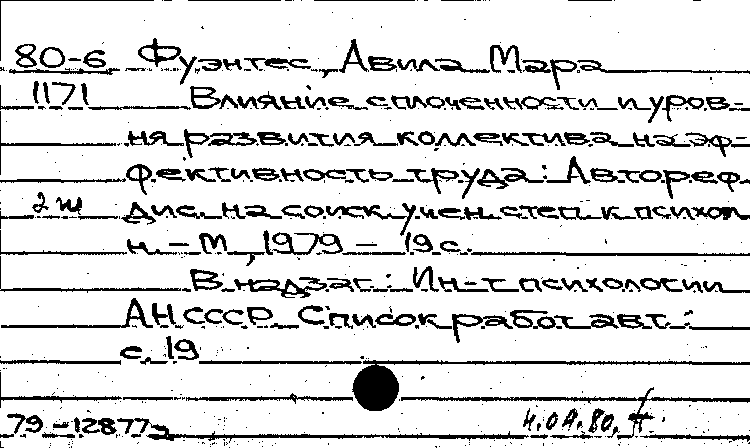 80-6 Фуэнтес, Авила Мара
1171 Влияние сплоченности и уров-
ня развития коллектива на эф-
фективность труда : Автореф.
2 ш дис. на соиск. учен. степ. к. психол.
н. - М., 1979 - 19 с.
В надзаг. : Ин-т психологии
АН СССР. Список работ авт. :
с. 19
79-12877а